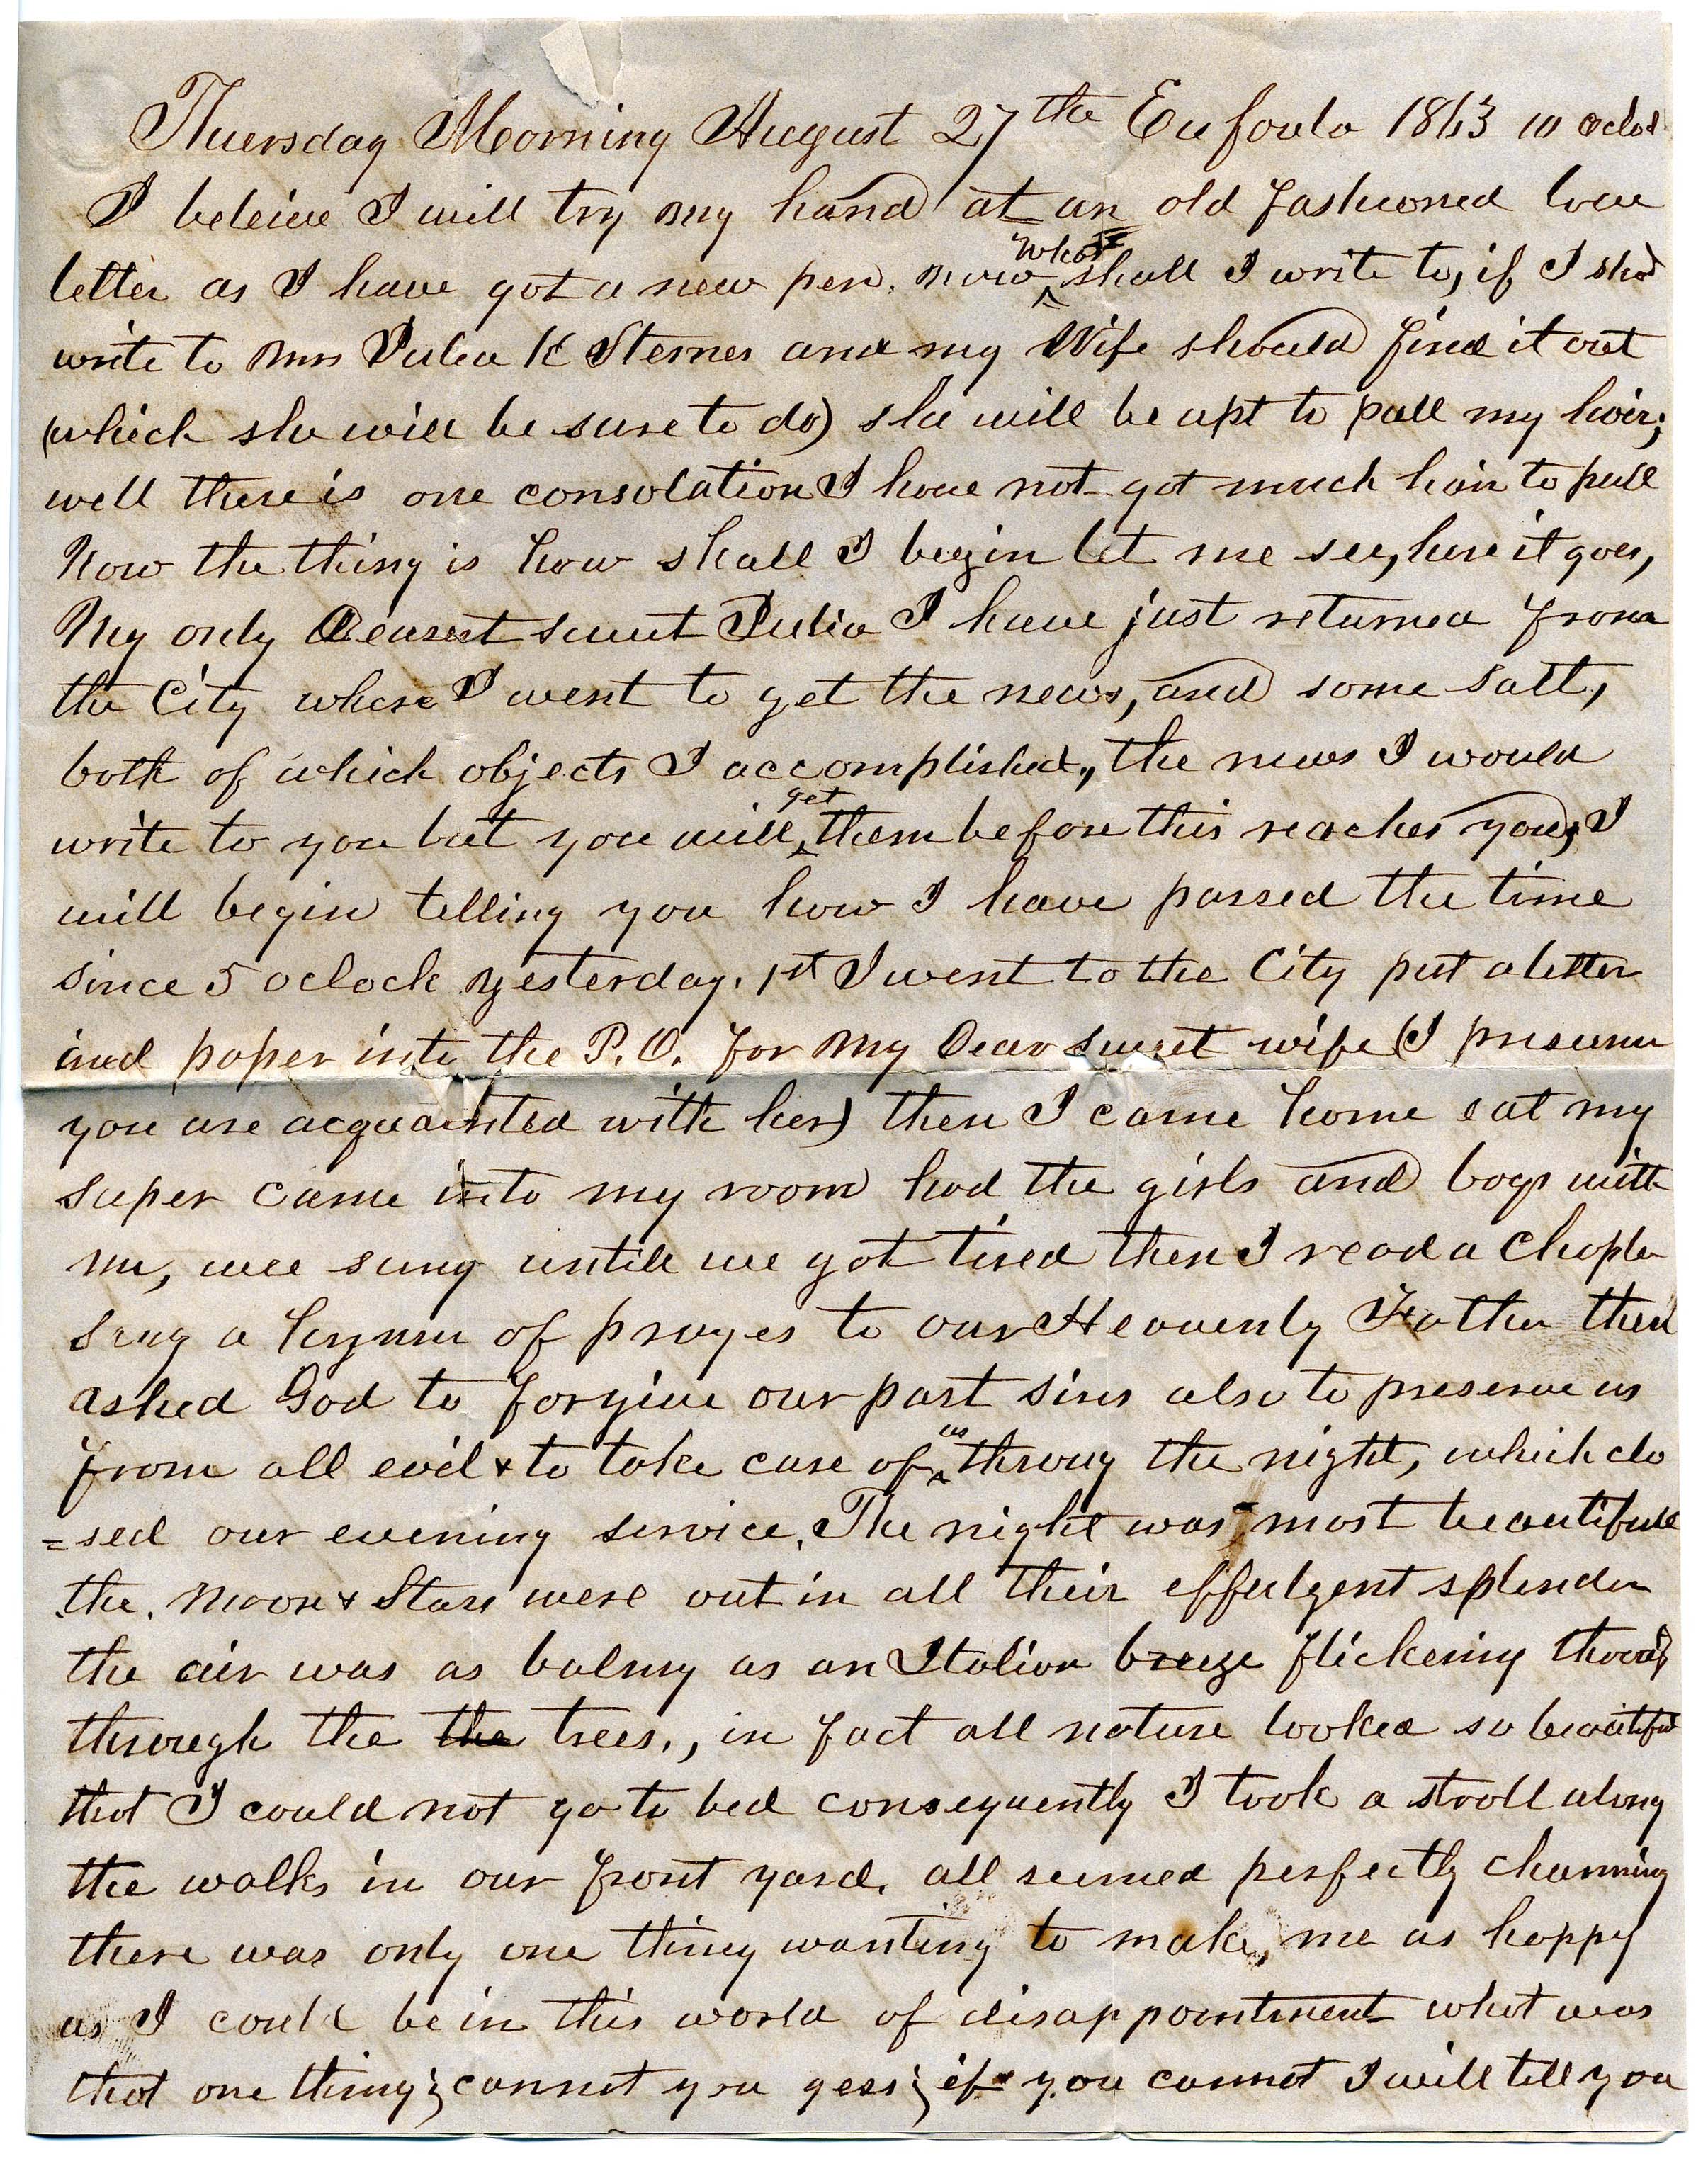 Thursday Morning August 27th Eufaula 1863 10 oclo
I beleive I will try my hand at an old fashioned love
letter as I have got a new pen. now who shall I write to, if I shd
write to Mrs Julia K Sternes and my Wife should find it out
(which she will be sure to do) she will be apt to pull my hair;
well there is one consolation I have not got much hair to pull
Now the thing is how shall I begin let me see, here it goes,
My only Dearest sweet Julia I have just returned from
the City where I went to get the news, and some salt,
both of which objects I accomplished, the news I would
write to you but you will get them before this reaches you, I
will begin telling you how I have passed the time
since 5 oclock yesterday. 1st I went to the City put a letter
and paper into the P.O. for My Dear sweet wife (I presume
you are acquainted with her) then I came home eat my
super came into my room had the girls and boys with
me, wee sung untill we got tired then I read a Chapter
sung a hymn of prayes to our Heavenly Father then
asked God to forgive our past sins also to preserve us
from all evil & to take care of us throug the night, which clo
=sed our evening service. The night was most beautifull
the. Moon & Stars were out in all their effulgent splendor
the air was as balmy as an Italian breeze flickering
through the the trees., in fact all nature looked so beautiful
that I could not go to bed consequently I took a stroll along
the walks in our front yard. all seemed perfectly charming
there was only one thing wanting to make, me as happy
as I could be in this world of disappointment what was
that one thing; cannot you gess; if you cannot I will tell you